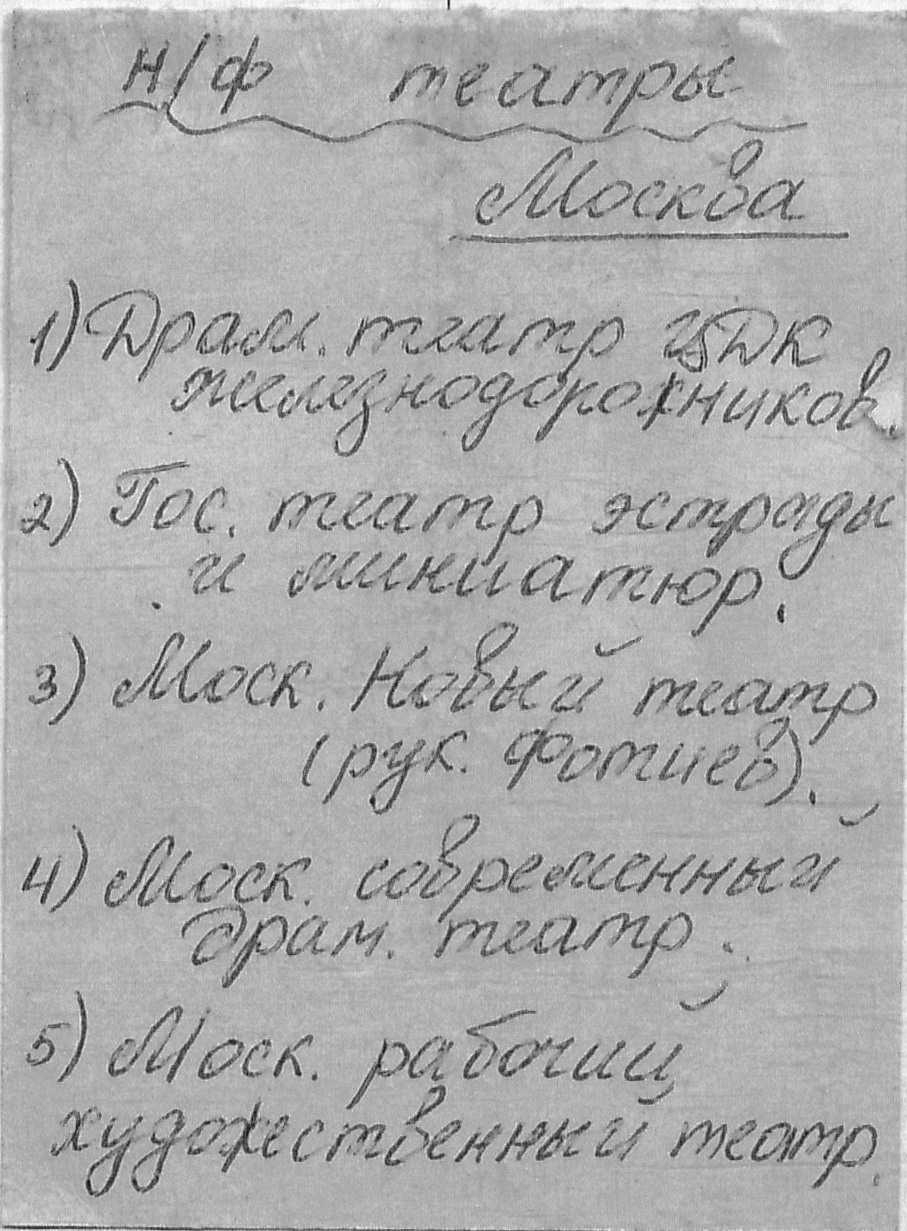 н/ф театры
Москва
1) Драм. театр ЦДК
железнодорожников.
2) Гос. театр эстрады
и миниатюр.
3) Моск. Новый театр
(рук. Фотиев).
4) Моск. современный
драм. театр.
5) Моск. рабочий
художественный театр.